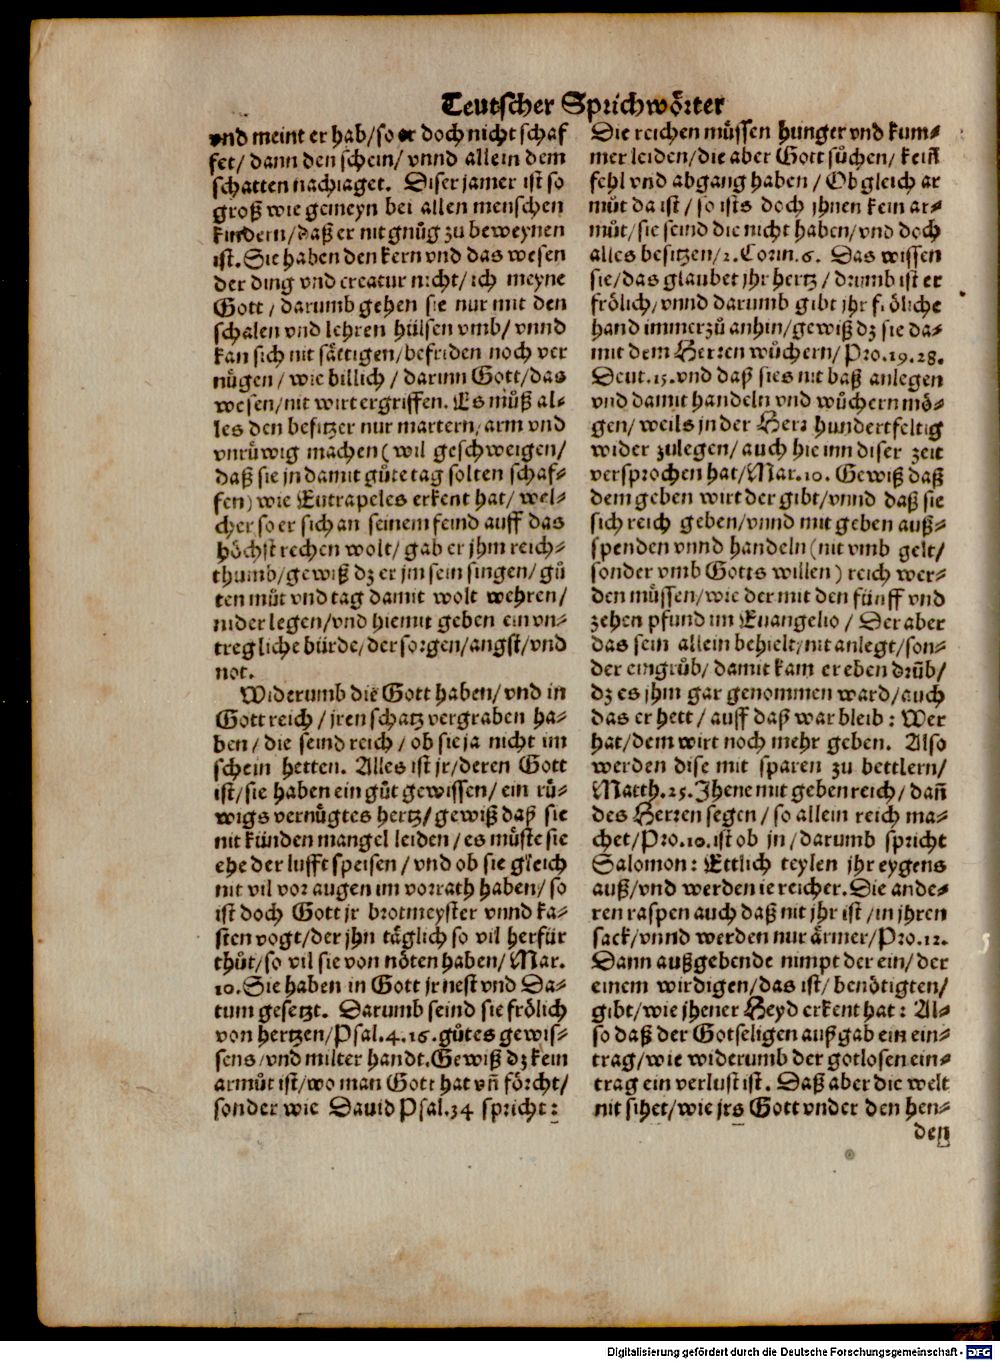 Teutscher Sprichwoͤrter
vnd meint er hab/so er doch nicht schaf
fet/ dann den schein/ vnnd allein dem
schatten nachiaget. Diser jamer ist so
groß wie gemeyn bei allen menschen
kindern/daß er nit gnuͦg zu beweynen
ist. Sie haben den kern vnd das wesen
der ding vnd creatur nicht/ich meyne
Gott/ darumb gehen sie nur mit den
schalen vnd lehren hülsen vmb/ vnnd
kan sich nit saͤttigen/befriden noch ver
nuͤgen/ wie billich/ darinn Gott/das
wesen/nit wirt ergriffen. Es muͦß al-
les den besitzer nur martern/arm vnd
vnruͤwig machen (wil geschweigen/
daß sie jn damit guͦte tag solten schaf-
fen) wie Eutrapeles erkent hat/ wel-
cher so er sich an seinem feind auff das
hoͤchst rechen wolt/ gab er jhm reich-
thumb/gewiß dz er jm sein singen/guͦ
ten muͦt vnd tag damit wolt wehren/
niderlegen/vnd hiemit geben ein vn-
tregliche bürde/der sorgen/angst/vnd
not.
Widerumb die Gott haben/ vnd in
Gott reich/ jren schatz vergraben ha-
ben/ die seind reich/ ob sie ja nicht im
schein hetten. Alles ist jr/deren Gott
ist/sie haben ein guͦt gewissen/ ein ruͤ-
wigs vernuͤgtes hertz/gewiß daß sie
nit künden mangel leiden/es muͤste sie
ehe der lufft speisen/ vnd ob sie gleich
nit vil vor augen im vorrath haben/ so
ist doch Gott jr brotmeyster vnnd ka-
sten vogt/der jhn taͤglich so vil herfür
thuͦt/so vil sie von noͤten haben/ Mar.
10. Sie haben in Gott jr nest vnd Da-
tum gesetzt. Darumb seind sie froͤlich
von hertzen/Psal.4.16.guͦtes gewis-
sens/vnd milter handt. Gewiß dz kein
armuͦt ist/wo man Gott hat vñ foͤrcht/
sonder wie Dauid Psal.34 spricht:
Die reichen muͤssen hunger vnd kum-
mer leiden/die aber Gott suͦchen/ kein
fehl vnd abgang haben/ Ob gleich ar
muͦt da ist/ so ists doch jhnen kein ar-
muͦt/sie seind die nicht haben/vnd doch
alles besitzen/2.Corin.6. Das wissen
sie/das glaubet jhr hertz/ drumb ist er
froͤlich/vnnd darumb gibt jhr froͤliche
hand immerzuͦ anhin/gewiß dz sie da-
mit dem Herren wuͦchern/Pro.19.28.
Deut.15.vnd daß sies nit baß anlegen
vnd damit handeln vnd wuͦchern moͤ-
gen/ weils jn der Herr hundertfeltig
wider zulegen/ auch hie inn diser zeit
versprochen hat/Mar.10. Gewiß daß
dem geben wirt der gibt/vnnd daß sie
sich reich geben/vnnd mit geben auß-
spenden vnnd handeln (nit vmb gelt/
sonder vmb Gotts willen) reich wer-
den muͤssen/wie der mit den fünff vnd
zehen pfund im Euangelio/ Der aber
das sein allein behielt/nit anlegt/son-
der eingruͦb/ damit kam er eben druͦb/
dz es jhm gar genommen ward/auch
das er hett/ auff daß war bleib: Wer
hat/dem wirt noch mehr geben. Also
werden dise mit sparen zu bettlern/
Matth.25.Jhene mit geben reich/ dañ
des Herren segen/ so allein reich ma-
chet/Pro.10.ist ob jn/darumb spricht
Salomon: Ettlich teylen jhr eygens
auß/vnd werden ie reicher. Die ande-
ren raspen auch daß nit jhr ist/in jhren
sack/vnnd werden nur aͤrmer/Pro.12.
Dann außgebende nimpt der ein/ der
einem wirdigen/das ist/ benoͤtigten/
gibt/wie jhener Heyd erkent hat: Al-
so daß der Gotseligen außgab ein ein-
trag/wie widerumb der gotlosen ein-
trag ein verlust ist. Daß aber die welt
nit sihet/wie jrs Gott vnder den hen-
den
Digitalisierung gefördert durch die Deutsche Forschungsgemeinschaft - DFG